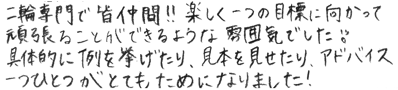 二輪専門で皆仲間!! 楽しく一つの目標に向かって
頑張ることができるような雰囲気でした。
具体的に例を挙げたり、見本を見せたり、アドバイス
一つひとつがとてもためになりました!